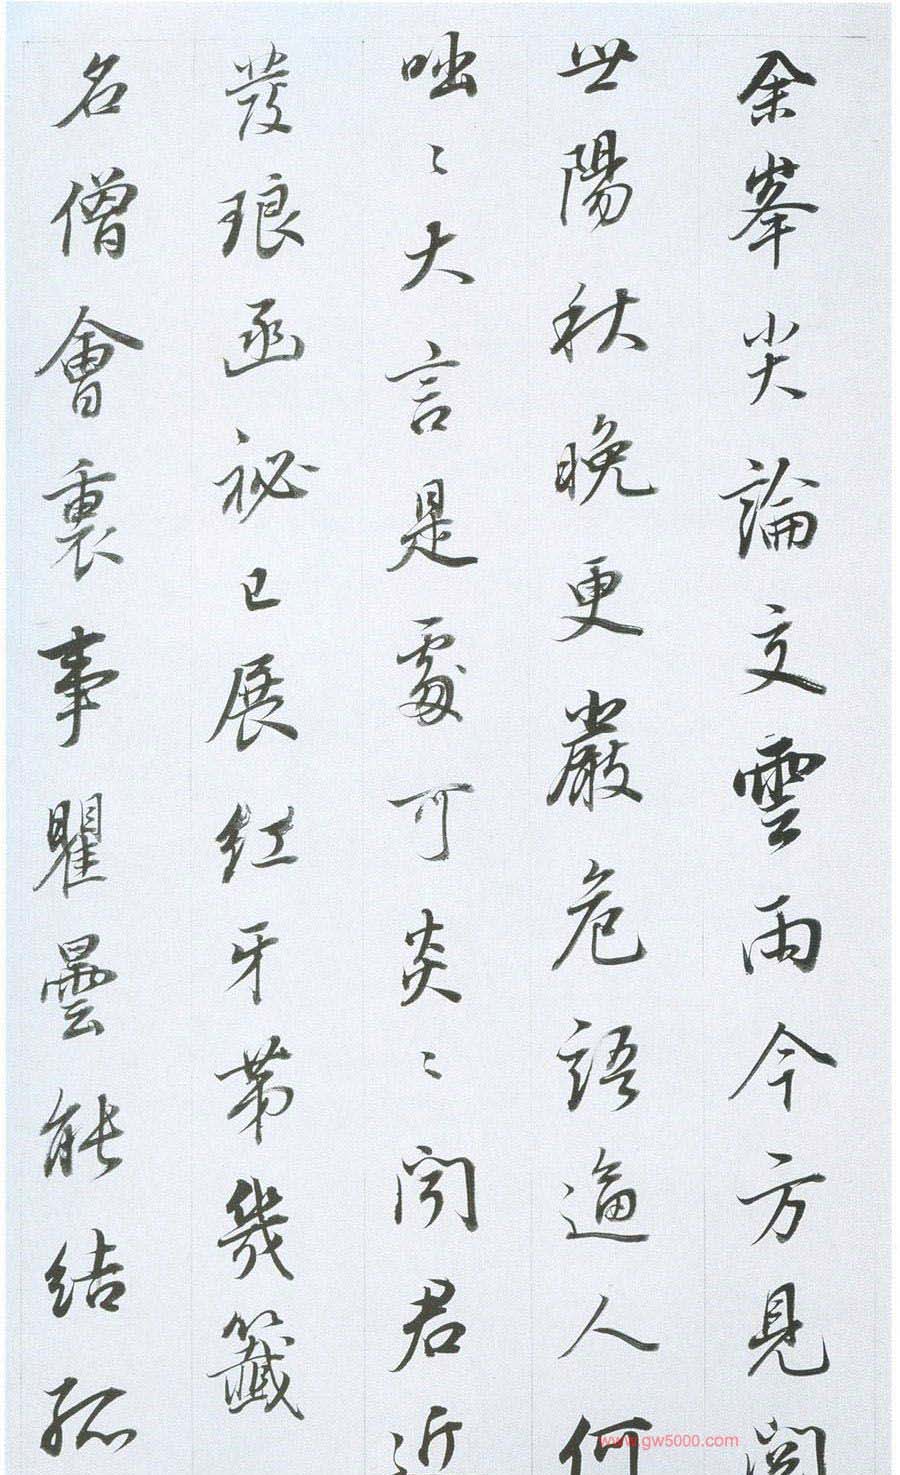 余峯尖論文雲雨今方見閱
世陽秋晚更嚴危語逼人何
咄〻大言是處可炎〻聞君近
發琅函祕已展紅牙第幾籤
名僧會裏事瞿曇能結孤
www.gw5000.com